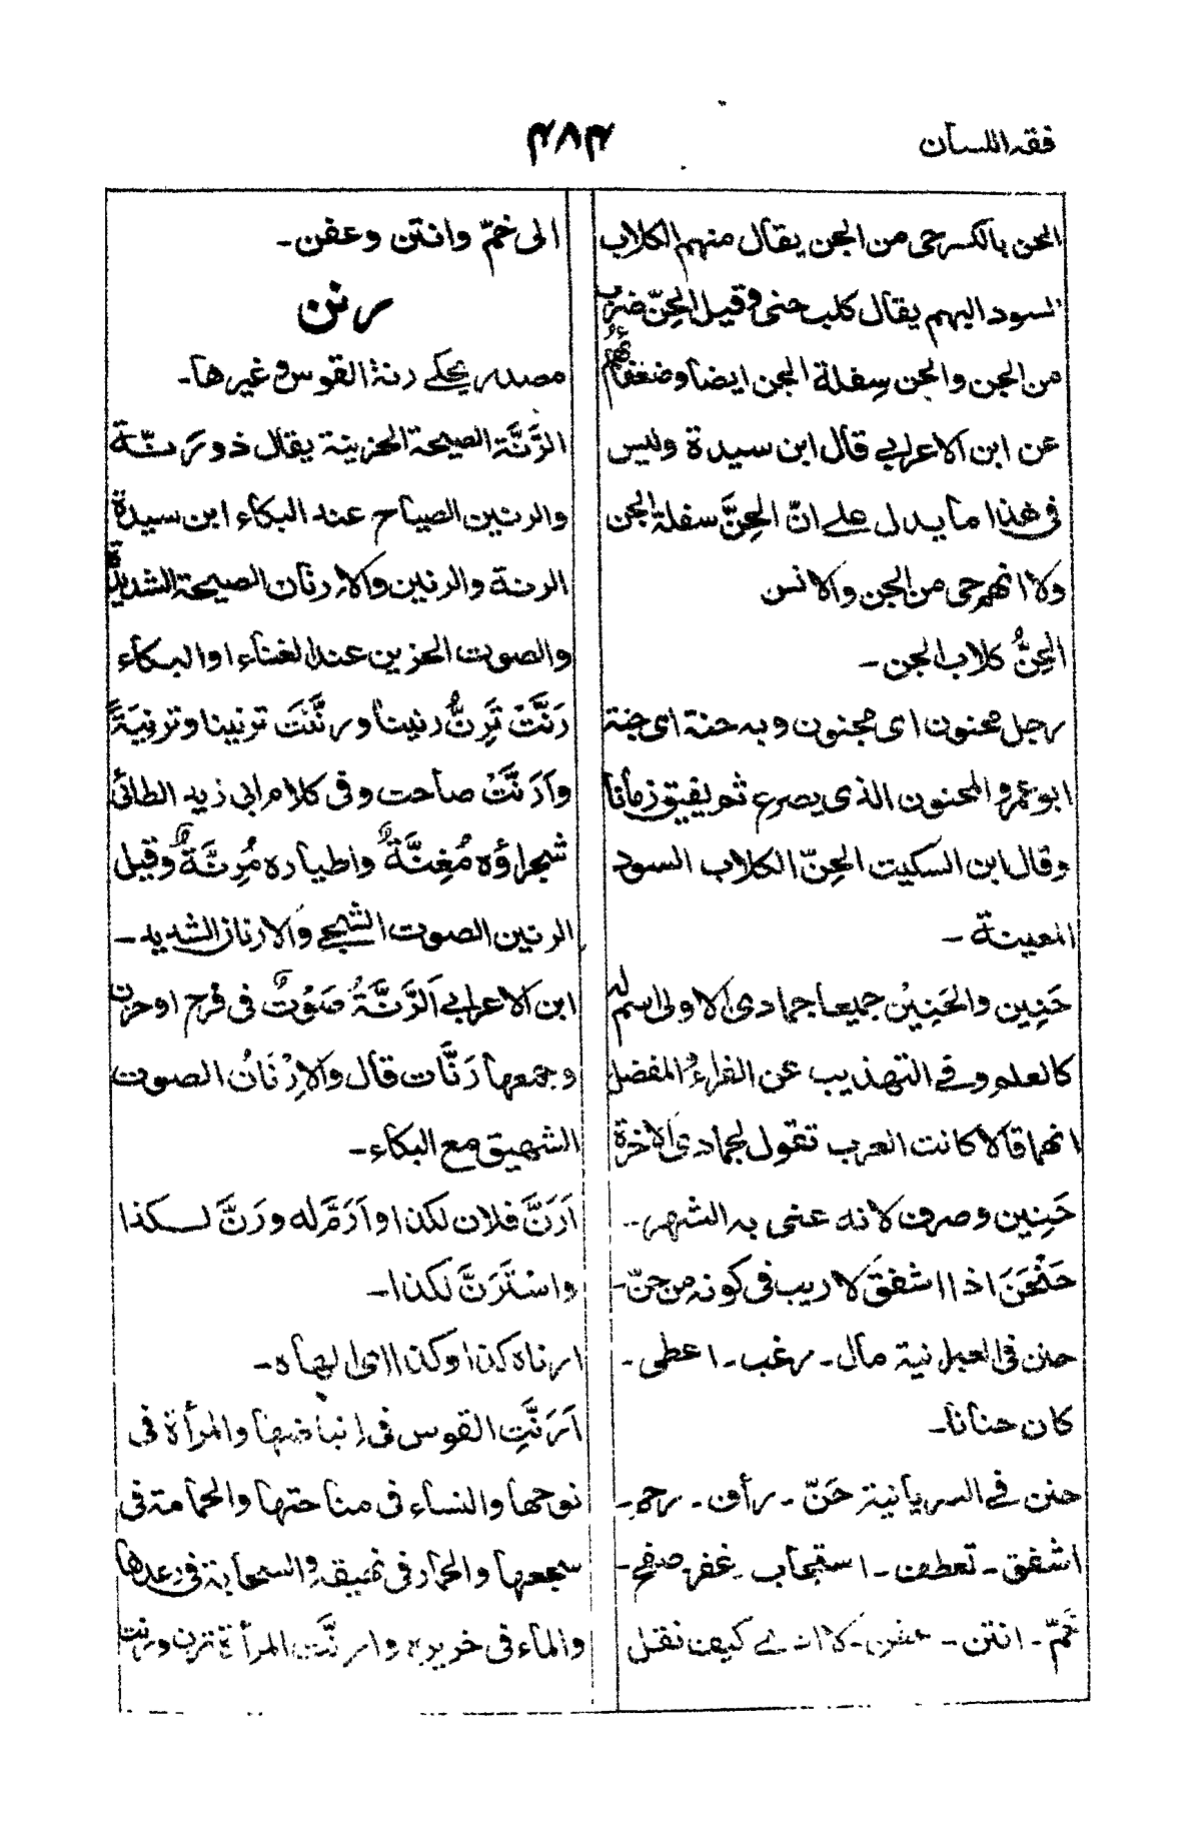 فقه اللسان
٤٨٣
الحن بالكسر حى من الجن يقال منهم الكلاب
السود البهم يقال كلب حنى وقيل الحِنّ ضرب
من الجن والحن سِفلة الجن ايضا وضعفاؤُهم
عن ابن الاعرابي قال ابن سيدة وليس
فى هذا ما يدل على انّ الحِنَّ سفلة الجن
ولا انهم حى من الجن والانس
الحِنُّ كلاب الجن ـ
رجل محنون اى مجنون وبه حنة اى جنة
ابو عمرو المحنون الذى يصرع ثم يفيق زمانا
وقال ابن السكيت الحِنّ الكلاب السود
المعينة ـ
حَنِين والحَنِيْن جميعا جمادى الاولى اسم له
كالعلم وفى التهذيب عن الفراء والمفضل
انهما قالا كانت العرب تقول لجمادى الاخرة
حَنِين وصرف لانه عنى به الشهر ـ
حَنْحَنَ اذا اشفقَ لا ريب فى كونه من حنّ ـ
حنن فى العبرانية مال ـ رغب ـ اعطى ـ
كان حنانا ـ
حنن في السريانية حَنّ ـ رأف ـ رحم ـ
اشفق ـ تعطف ـ استجاب غفر صفح ـ
خمّ ـ انتن ـ عفن ـ لا ادرى كيف نقل
الى خمّ وانتن وعفن ـ
رنن
مصدر يحكى رنة القوس وغيرها ـ
الرَّنَّة الصيحة الحزينة يقال ذو رَنّة
والرنين الصياح عند البكاء ابن سيدة
الرنة والرنين والارنان الصيحة الشديدة
والصوت الحزين عند الغناء او البكاء
رَنَّتْ تَرِنُّ رنينا ورنَّنَت ترنينا وترنِيَةً
وَاَرَنَّتْ صاحت وفى كلام ابى زبيد الطائى
شجراؤه مُغِنَّةٌ واطياره مُرِنَّةٌ وقيل
الرنين الصوت الشجي والارنان الشديد ـ
ابن الاعرابي اَلرَّنَّةُ صَوْتٌ فى فرح او حزن
وجمعها رَنَّات قال والاِرْنَانُ الصوت
الشهيق مع البكاء ـ
اَرَنَّ فلان لكذا واَرَمَّ له ورَنَّ لكذا
واسْتَرَنَّ لكذا ـ
ارناه كذا وكذا اى الهاه ـ
اَرَنَّتِ القوس فى اِنباضها والمرأة فى
نوحها والنساء فى مناحتها والحمامة فى
سجعها والحمار فى نهيقه والسحابة فى رعدها
والماء فى خريره وارنَّت المرأة ترن ورنت